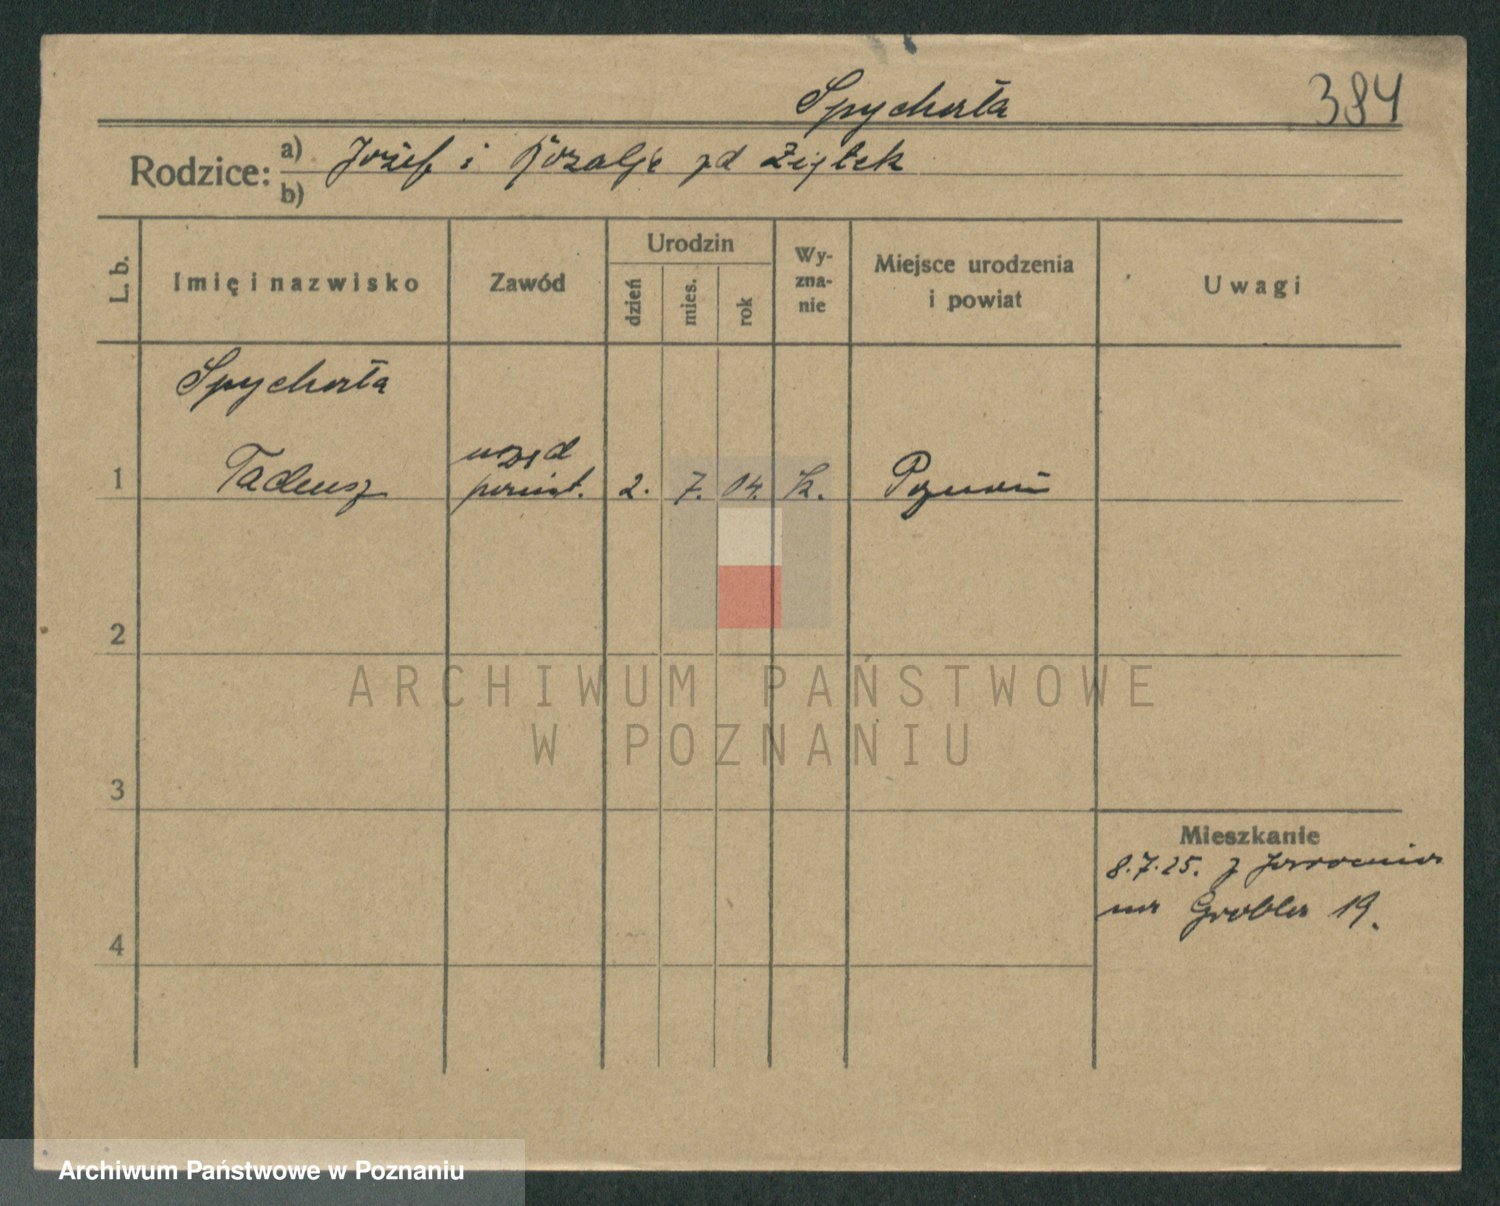 Spychała
384
Rodzice: a) Józef i Rozalje zd Ziętek
b)
L. b.
Imię i nazwisko
Zawód
Urodzin
dzień
mies.
rok
Wy-
zna-
nie
Miejsce urodzenia
i powiat
Uwagi
Spychała
1 Tadeusz
urzęd
powiat.
2. 7. 04. k. Poznań
2
3
4
Mieszkanie
8.7.25. z Jarocina
na Grobla 19.
ARCHIWUM PAŃSTWOWE
W POZNANIU
Archiwum Państwowe w Poznaniu